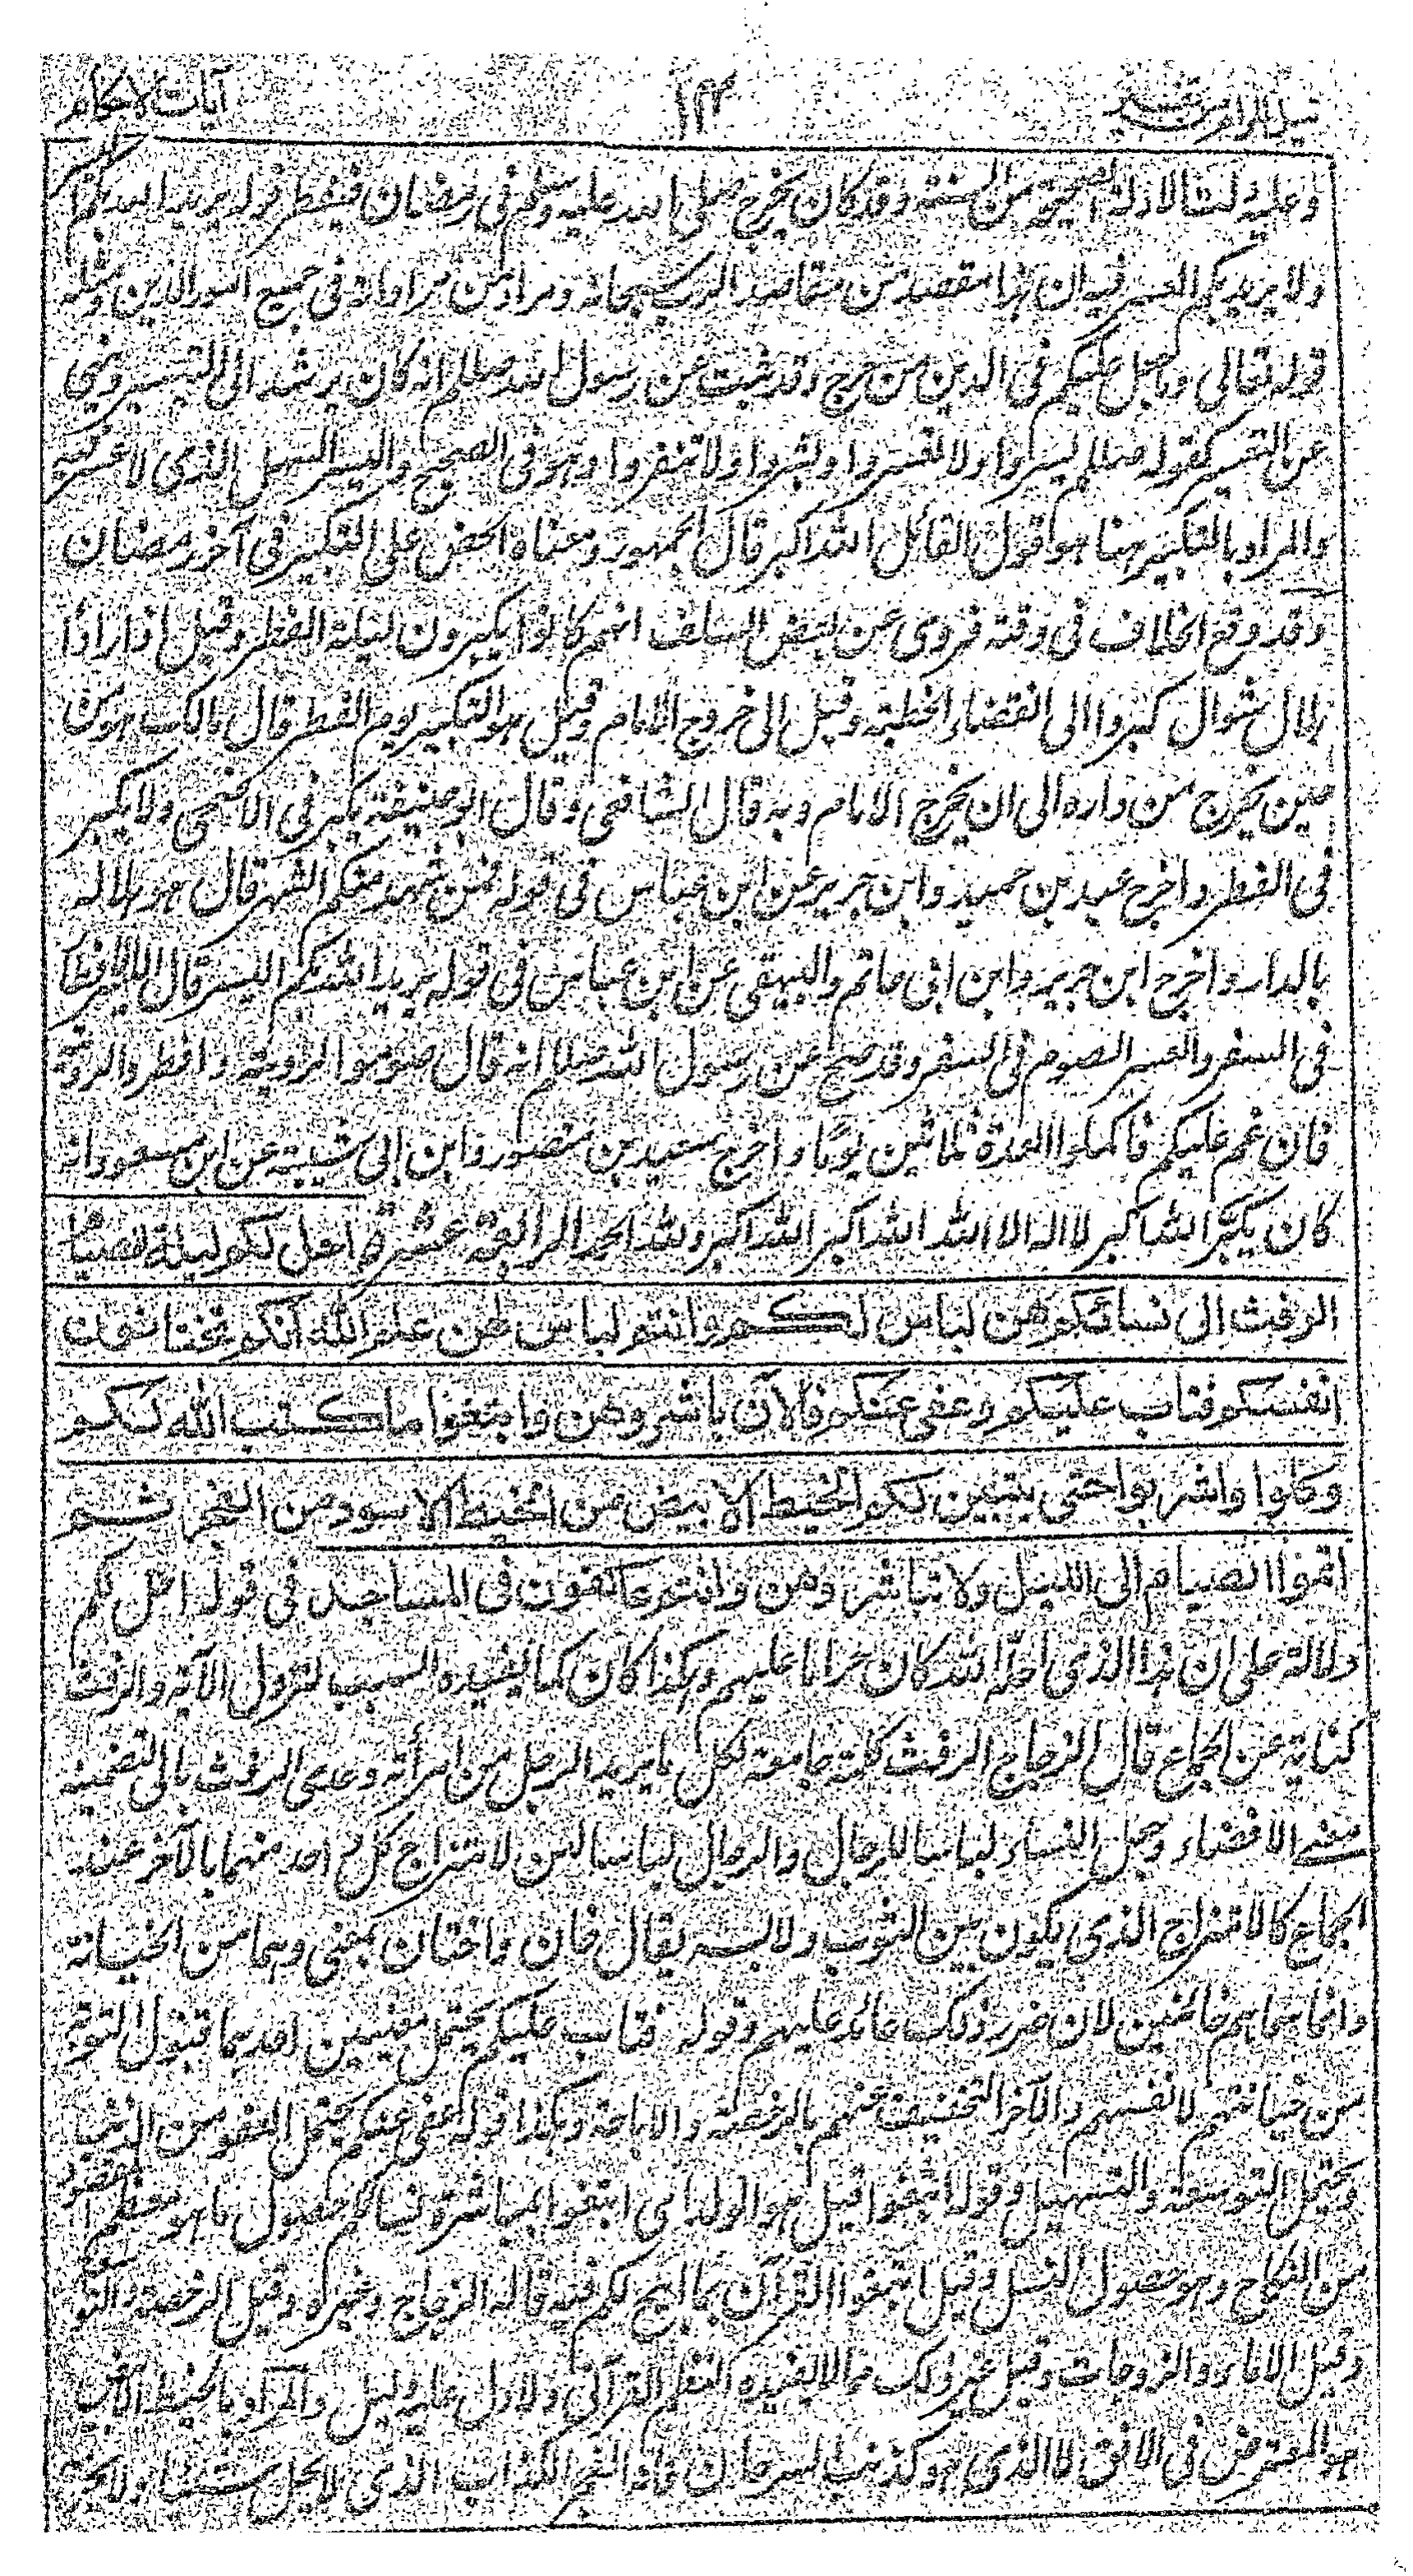 نيل المرام من تفسير ٢٣ آيات الاحكام
وعليه دلت الادلة الصحيحة من السنة وقد كان يخرج صلى الله عليه وسلم فى رمضان فيفطر قوله يريد الله بكم اليسر
ولا يريد بكم العسر فيه ان هذا مقصد من مقاصد الرب سبحانه ومراد من مراداته فى جميع امور الدين ومثله
قوله تعالى وما جعل عليكم فى الدين من حرج وقد ثبت عن رسول الله صللم انه كان يرشد الى التيسير وينهى
عن التعسير كقوله صللم يسروا ولا تعسروا وبشروا ولا تنفروا وهو فى الصحيح واليسر السهل الذى لا عسر فيه
والمراد بالتكبير هنا هو قول القائل الله اكبر قال الجمهور ومعناه الحض على التكبير فى آخر رمضان
وقد وقع الخلاف فى وقته فروى عن بعض السلف انهم كانوا يكبرون ليلة الفطر وقيل اذا راوا
هلال شوال كبروا الى انقضاء الخطبة وقيل الى خروج الامام وقيل هو التكبير يوم الفطر قال مالك هو من
حين يخرج من داره الى ان يخرج الامام وبه قال الشافعى وقال ابو حنيفة يكبر فى الاضحى ولا يكبر
فى الفطر واخرج عبد بن حميد وابن جرير عن ابن عباس فى قوله فمن شهد منكم الشهر قال هو هلاله
بالدار واخرج ابن جرير وابن ابى حاتم والبيهقى عن ابن عباس فى قوله يريد الله بكم اليسر قال اليسر الافطار
فى السفر والعسر الصوم فى السفر وقد صح عن رسول الله صللم انه قال صوموا لرويته وافطروا لرويته
فان غم عليكم فاكملوا العدة ثلاثين يومًا واخرج سعيد بن منصور وابن ابى شيبة عن ابن مسعود انه
كان يكبّر الله اكبر لا اله الا الله الله اكبر الله اكبر ولله الحمد الرابعة عشرة احل لكم ليلة الصيام
الرفث الى نسائكم هن لباس لكم وانتم لباس لهن علم الله انكم كنتم تختانون
انفسكم فتاب عليكم وعفى عنكم فالآن باشروهن وابتغوا ما كتب الله لكم
وكلوا واشربوا حتى يتبين لكم الخيط الابيض من الخيط الاسود من الفجر ثم
اتموا الصيام الى الليل ولا تباشروهن وانتم عاكفون فى المساجد فى قوله احل لكم
دلالة على ان هذا الذى احله الله كان حراما عليهم وهكذا كان كما يفيده السبب لنزول الآية والرفث
كناية عن الجماع قال الزجاج الرفث كلمة جامعة لكل ما يريد الرجل من امرأته وعدى الرفث بالى لتضمينه
معنى الافضاء وجعل النساء لباسا للرجال والرجال لباسا لهن لامتزاج كل واحد منهما بالآخر عند
الجماع كالامتزاج الذى يكون بين الثوب ولابسه يقال خان واختان بمعنى وهما من الخيانة
وانما سماهم خائنين لان ضرر ذلك عائد عليهم وقوله فتاب عليكم يحتمل معنيين احدهما قبول التوبة
من خيانتهم لانفسهم والآخر التخفيف عنهم بالرخصة والاباحة وهكذا قوله عفى عنكم يحتمل العفو من الذنب
ويحتمل التوسعة والتسهيل وقوله ابتغوا قيل هو الولد اى ابتغوا بمباشرة نسائكم حصول ما هو معظم المقصود
من النكاح وهو حصول النسل وقيل ابتغوا القرآن بما ابيح لكم فيه قاله الزجاج وغيره وقيل الرخصة والتوسعة
وقيل الاماء والزوجات وقيل غير ذلك مما لا يفيده النظم القرآنى ولا دل عليه دليل والمراد بالخيط الابيض
هو المعترض فى الافق لا الذى هو كذنب السرحان فانه الفجر الكذاب الذى لا يحل شيئا ولا يحرمه